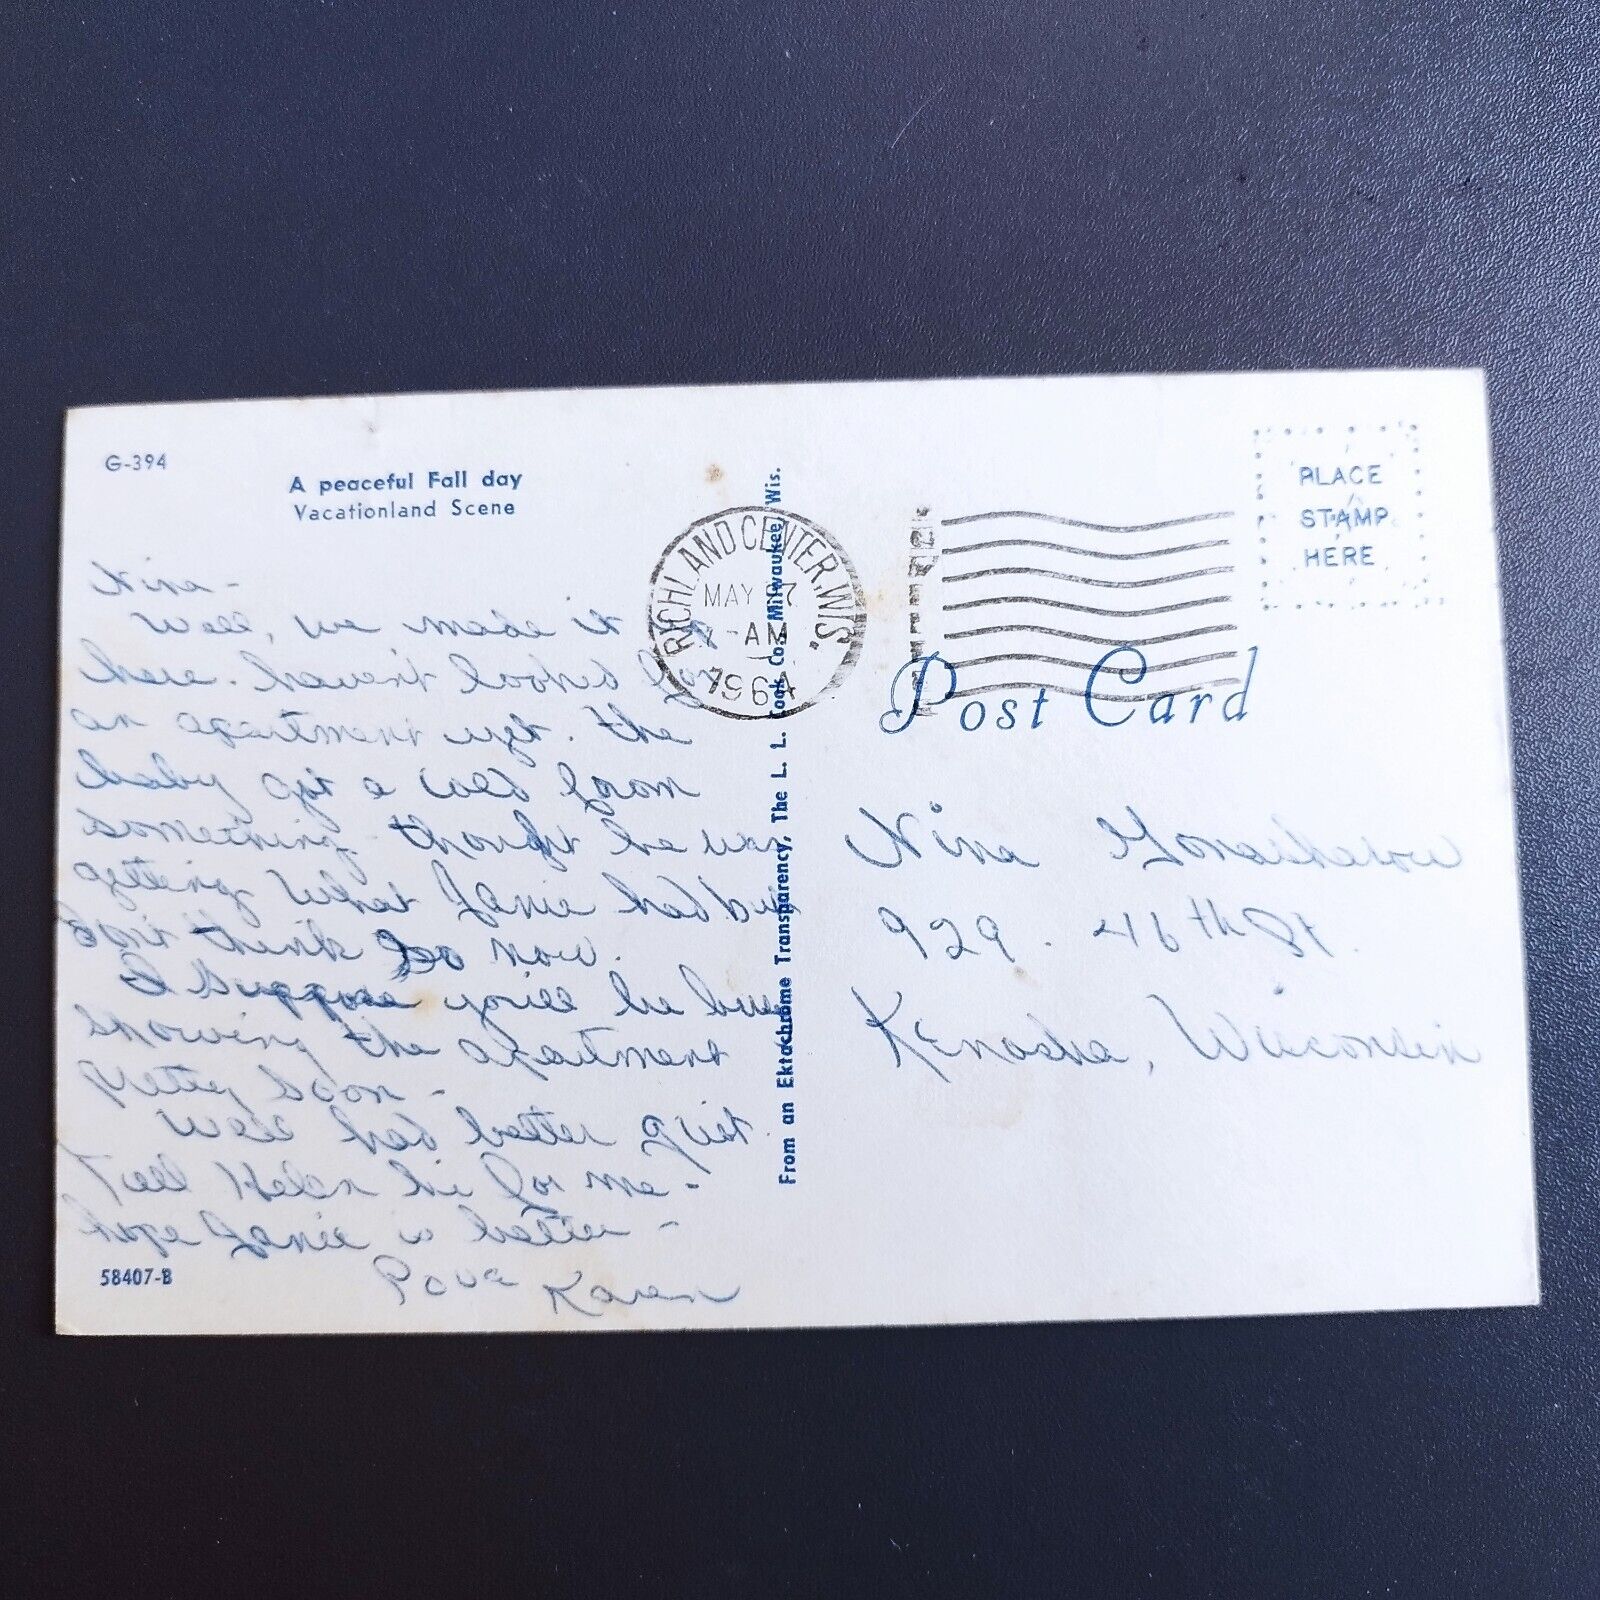 G-394
A peaceful Fall day
Vacationland Scene
Nina -
Well, we made it up
here. haven't looked for
an apartment yet. the
baby got a cold from
something - thought he was
getting what Janie had but
don't think so now.
I suppose you'll be busy
showing the apartment
pretty soon -
Well had better quit.
Tell Helen hi for me -
hope Janie is better -
Love Karen
58407-B
From an Ektachrome Transparency, The L. L. Cook Co., Milwaukee, Wis.
RICHLAND CENTER, WIS.
MAY 7
AM
1964
PLACE
STAMP
HERE
Post Card
Nina
929 - 46th St.
Kenosha, Wisconsin